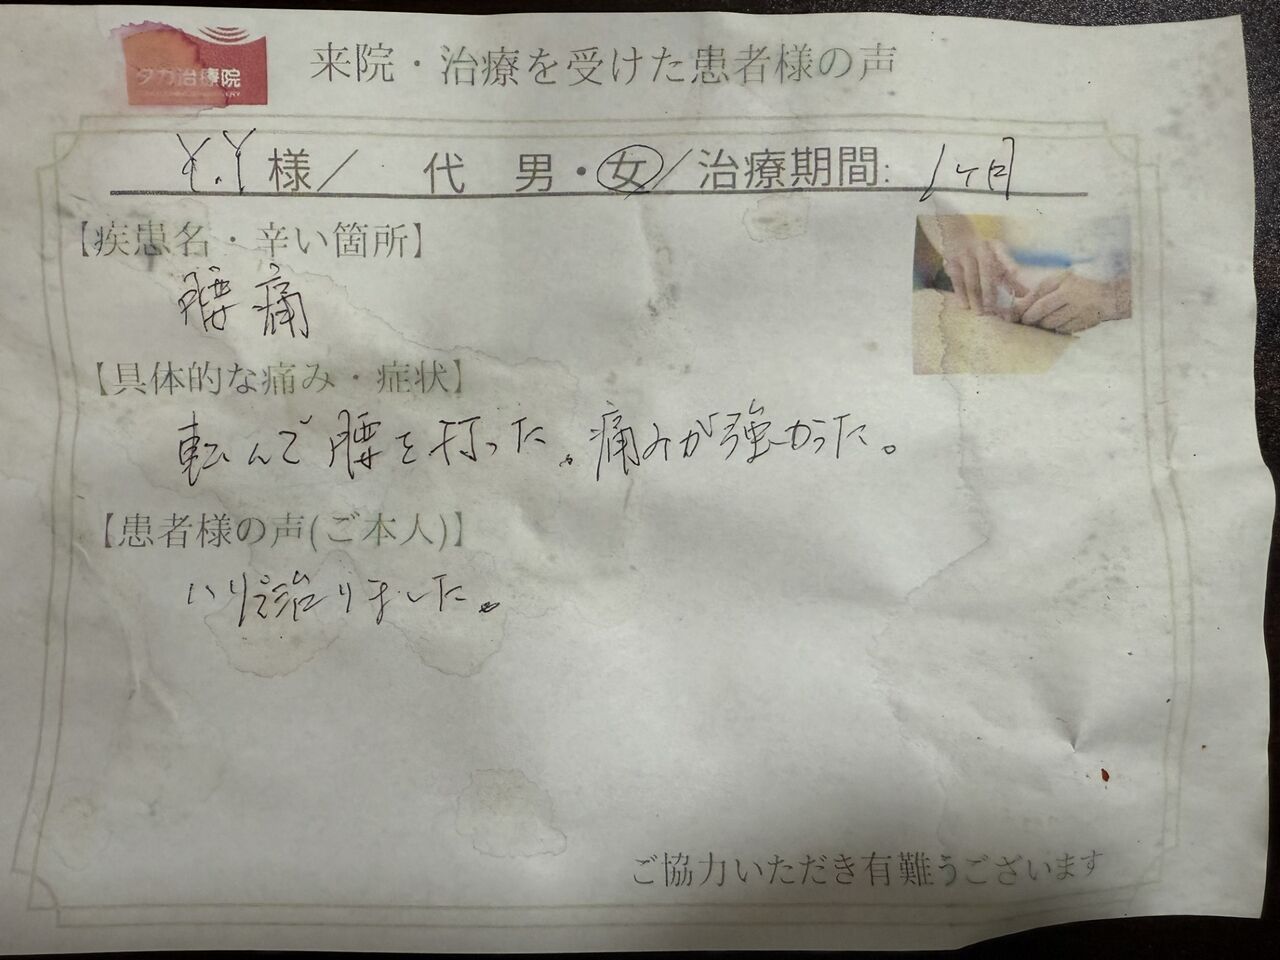 タカ治療院
来院・治療を受けた患者様の声
Y.Y様／　代　男・女／治療期間: 1ヶ月
【疾患名・辛い箇所】
腰痛
【具体的な痛み・症状】
転んで腰を打った。痛みが強かった。
【患者様の声(ご本人)】
ハリで治りました。
ご協力いただき有難うございます